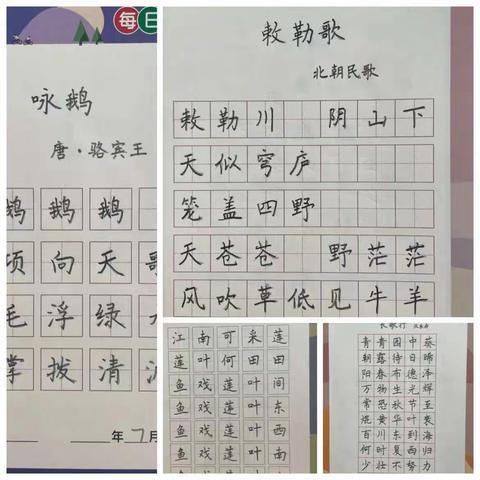 每日
咏鹅
唐·骆宾王
鹅鹅鹅
项向天歌
毛浮绿
掌拨清波
年7月
敕勒歌
北朝民歌
敕勒川 阴山下
天似穹庐
笼盖四野
天苍苍 野茫茫
风吹草低见牛羊
江南可采莲
莲叶何田田
鱼戏莲叶间
鱼戏莲叶东
鱼戏莲叶西
鱼戏莲叶南
长歌行
青青园中葵
朝露待日晞
阳春布德泽
万物生光辉
常恐秋节至
焜黄华叶衰
百川东到海
何时复西归
少壮不努力